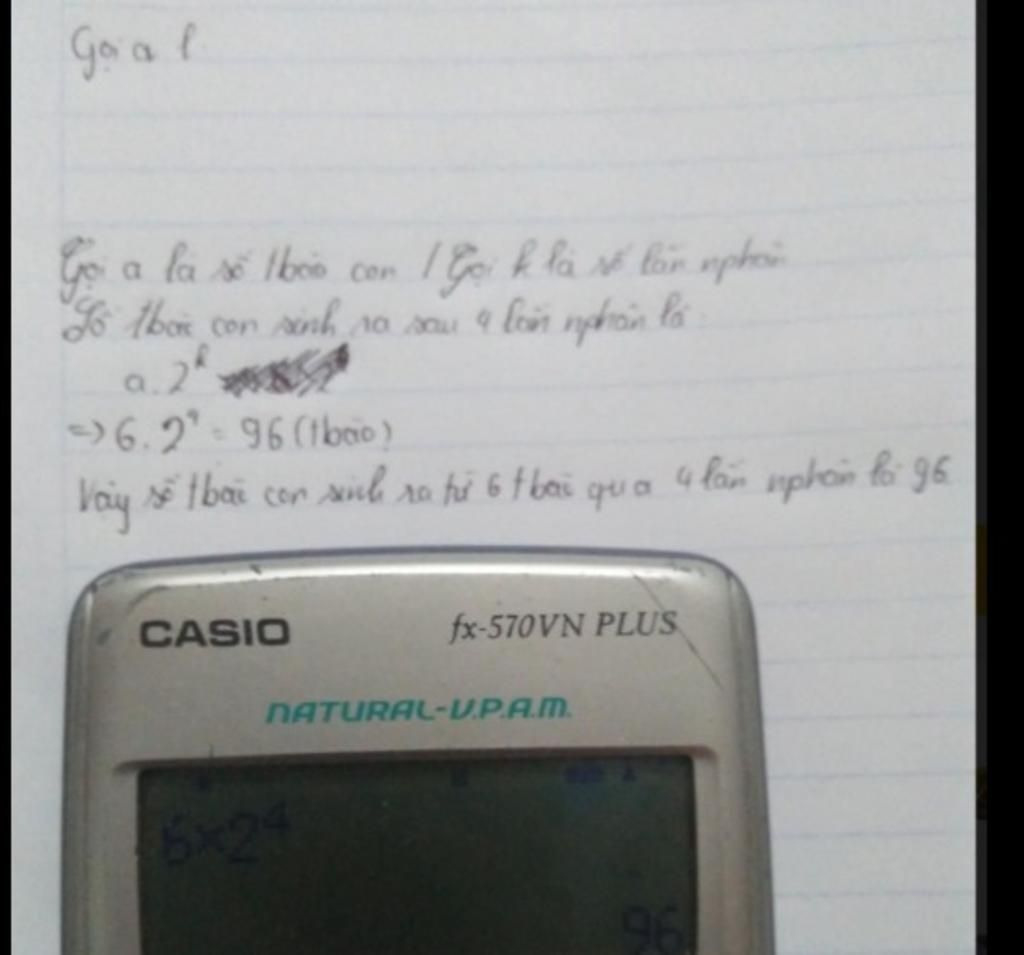 Gọi a l
Gọi a là số tbào con / Gọi k là số lần nphân
Số tbào con sinh ra sau 4 lần nphân là:
a.2^k
=> 6.2^4 = 96 (tbào)
Vậy số tbào con sinh ra từ 6 tbào qua 4 lần nphân là 96
CASIO fx-570VN PLUS
NATURAL-V.P.A.M.
6×2^4
96